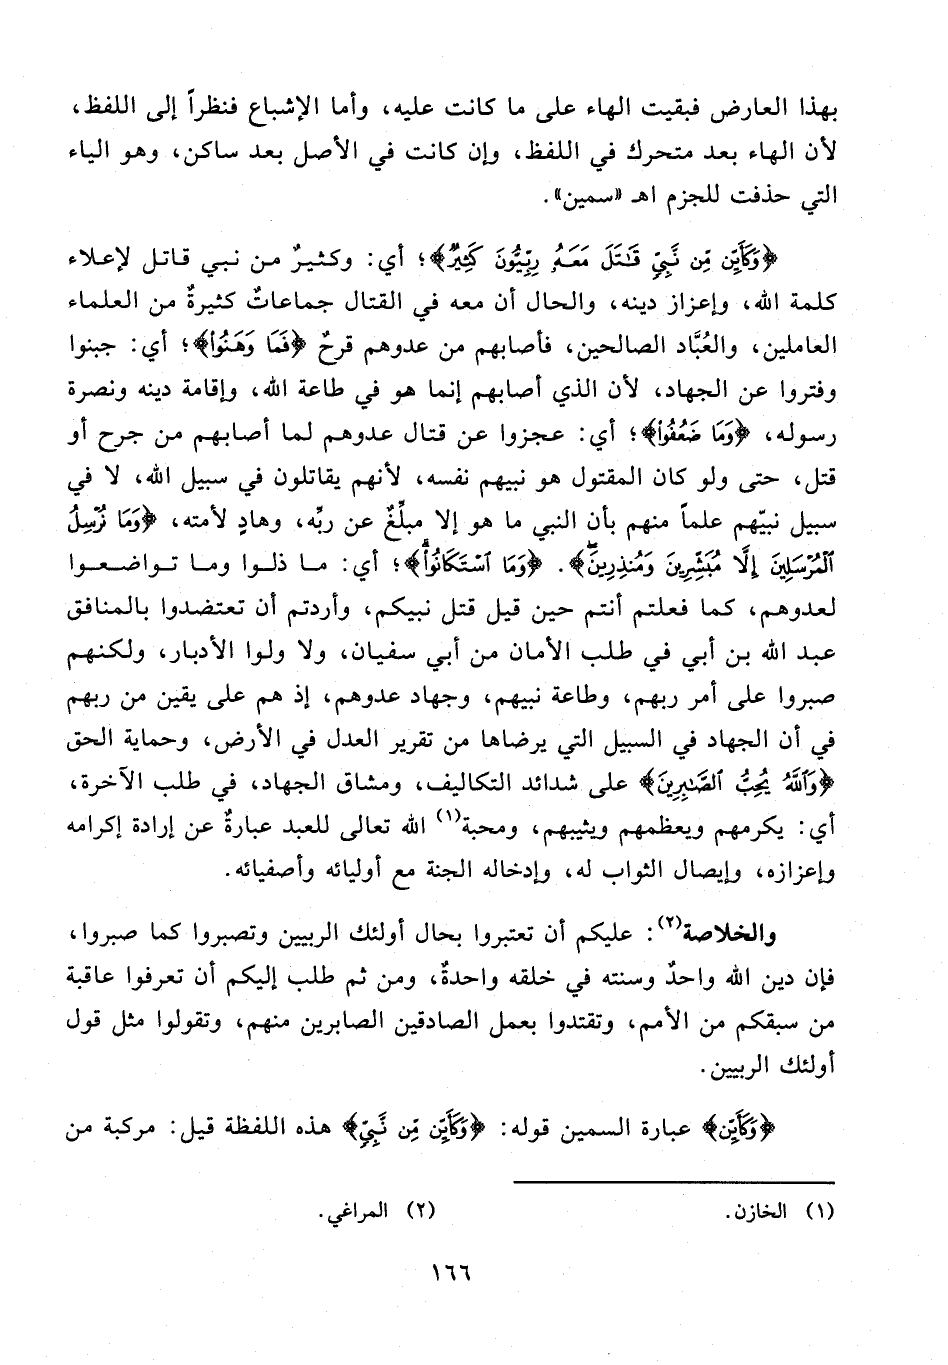 بهذا العارض فبقيت الهاء على ما كانت عليه، وأما الإشباع فنظراً إلى اللفظ،
لأن الهاء بعد متحرك في اللفظ، وإن كانت في الأصل بعد ساكن، وهو الياء
التي حذفت للجزم اهـ «سمين».
﴿وَكَأَيِّن مِّن نَّبِيٍّ قَٰتَلَ مَعَهُۥ رِبِّيُّونَ كَثِيرٌ﴾؛ أي: وكثيرٌ من نبي قاتل لإعلاء
كلمة الله، وإعزاز دينه، والحال أن معه في القتال جماعاتٌ كثيرةٌ من العلماء
العاملين، والعُبَّاد الصالحين، فأصابهم من عدوهم قرحٌ ﴿فَمَا وَهَنُوا۟﴾؛ أي: جبنوا
وفتروا عن الجهاد، لأن الذي أصابهم إنما هو في طاعة الله، وإقامة دينه ونصرة
رسوله، ﴿وَمَا ضَعُفُوا۟﴾؛ أي: عجزوا عن قتال عدوهم لما أصابهم من جرح أو
قتل، حتى ولو كان المقتول هو نبيهم نفسه، لأنهم يقاتلون في سبيل الله، لا في
سبيل نبيّهم علماً منهم بأن النبي ما هو إلا مبلِّغٌ عن ربِّه، وهادٍ لأمته، ﴿وَمَا نُرْسِلُ
ٱلْمُرْسَلِينَ إِلَّا مُبَشِّرِينَ وَمُنذِرِينَۖ﴾. ﴿وَمَا ٱسْتَكَانُوا۟ۗ﴾؛ أي: ما ذلوا وما تواضعوا
لعدوهم، كما فعلتم أنتم حين قيل قتل نبيكم، وأردتم أن تعتضدوا بالمنافق
عبد الله بن أبي في طلب الأمان من أبي سفيان، ولا ولوا الأدبار، ولكنهم
صبروا على أمر ربهم، وطاعة نبيهم، وجهاد عدوهم، إذ هم على يقين من ربهم
في أن الجهاد في السبيل التي يرضاها من تقرير العدل في الأرض، وحماية الحق
﴿وَٱللَّهُ يُحِبُّ ٱلصَّٰبِرِينَ﴾ على شدائد التكاليف، ومشاق الجهاد، في طلب الآخرة،
أي: يكرمهم ويعظمهم ويثيبهم، ومحبة(١) الله تعالى للعبد عبارةٌ عن إرادة إكرامه
وإعزازه، وإيصال الثواب له، وإدخاله الجنة مع أوليائه وأصفيائه.
والخلاصة(٢): عليكم أن تعتبروا بحال أولئك الربيين وتصبروا كما صبروا،
فإن دين الله واحدٌ وسنته في خلقه واحدةٌ، ومن ثم طلب إليكم أن تعرفوا عاقبة
من سبقكم من الأمم، وتقتدوا بعمل الصادقين الصابرين منهم، وتقولوا مثل قول
أولئك الربيين.
﴿وَكَأَيِّن﴾ عبارة السمين قوله: ﴿وَكَأَيِّن مِّن نَّبِيٍّ﴾ هذه اللفظة قيل: مركبة من
(١) الخازن. (٢) المراغي.
١٦٦